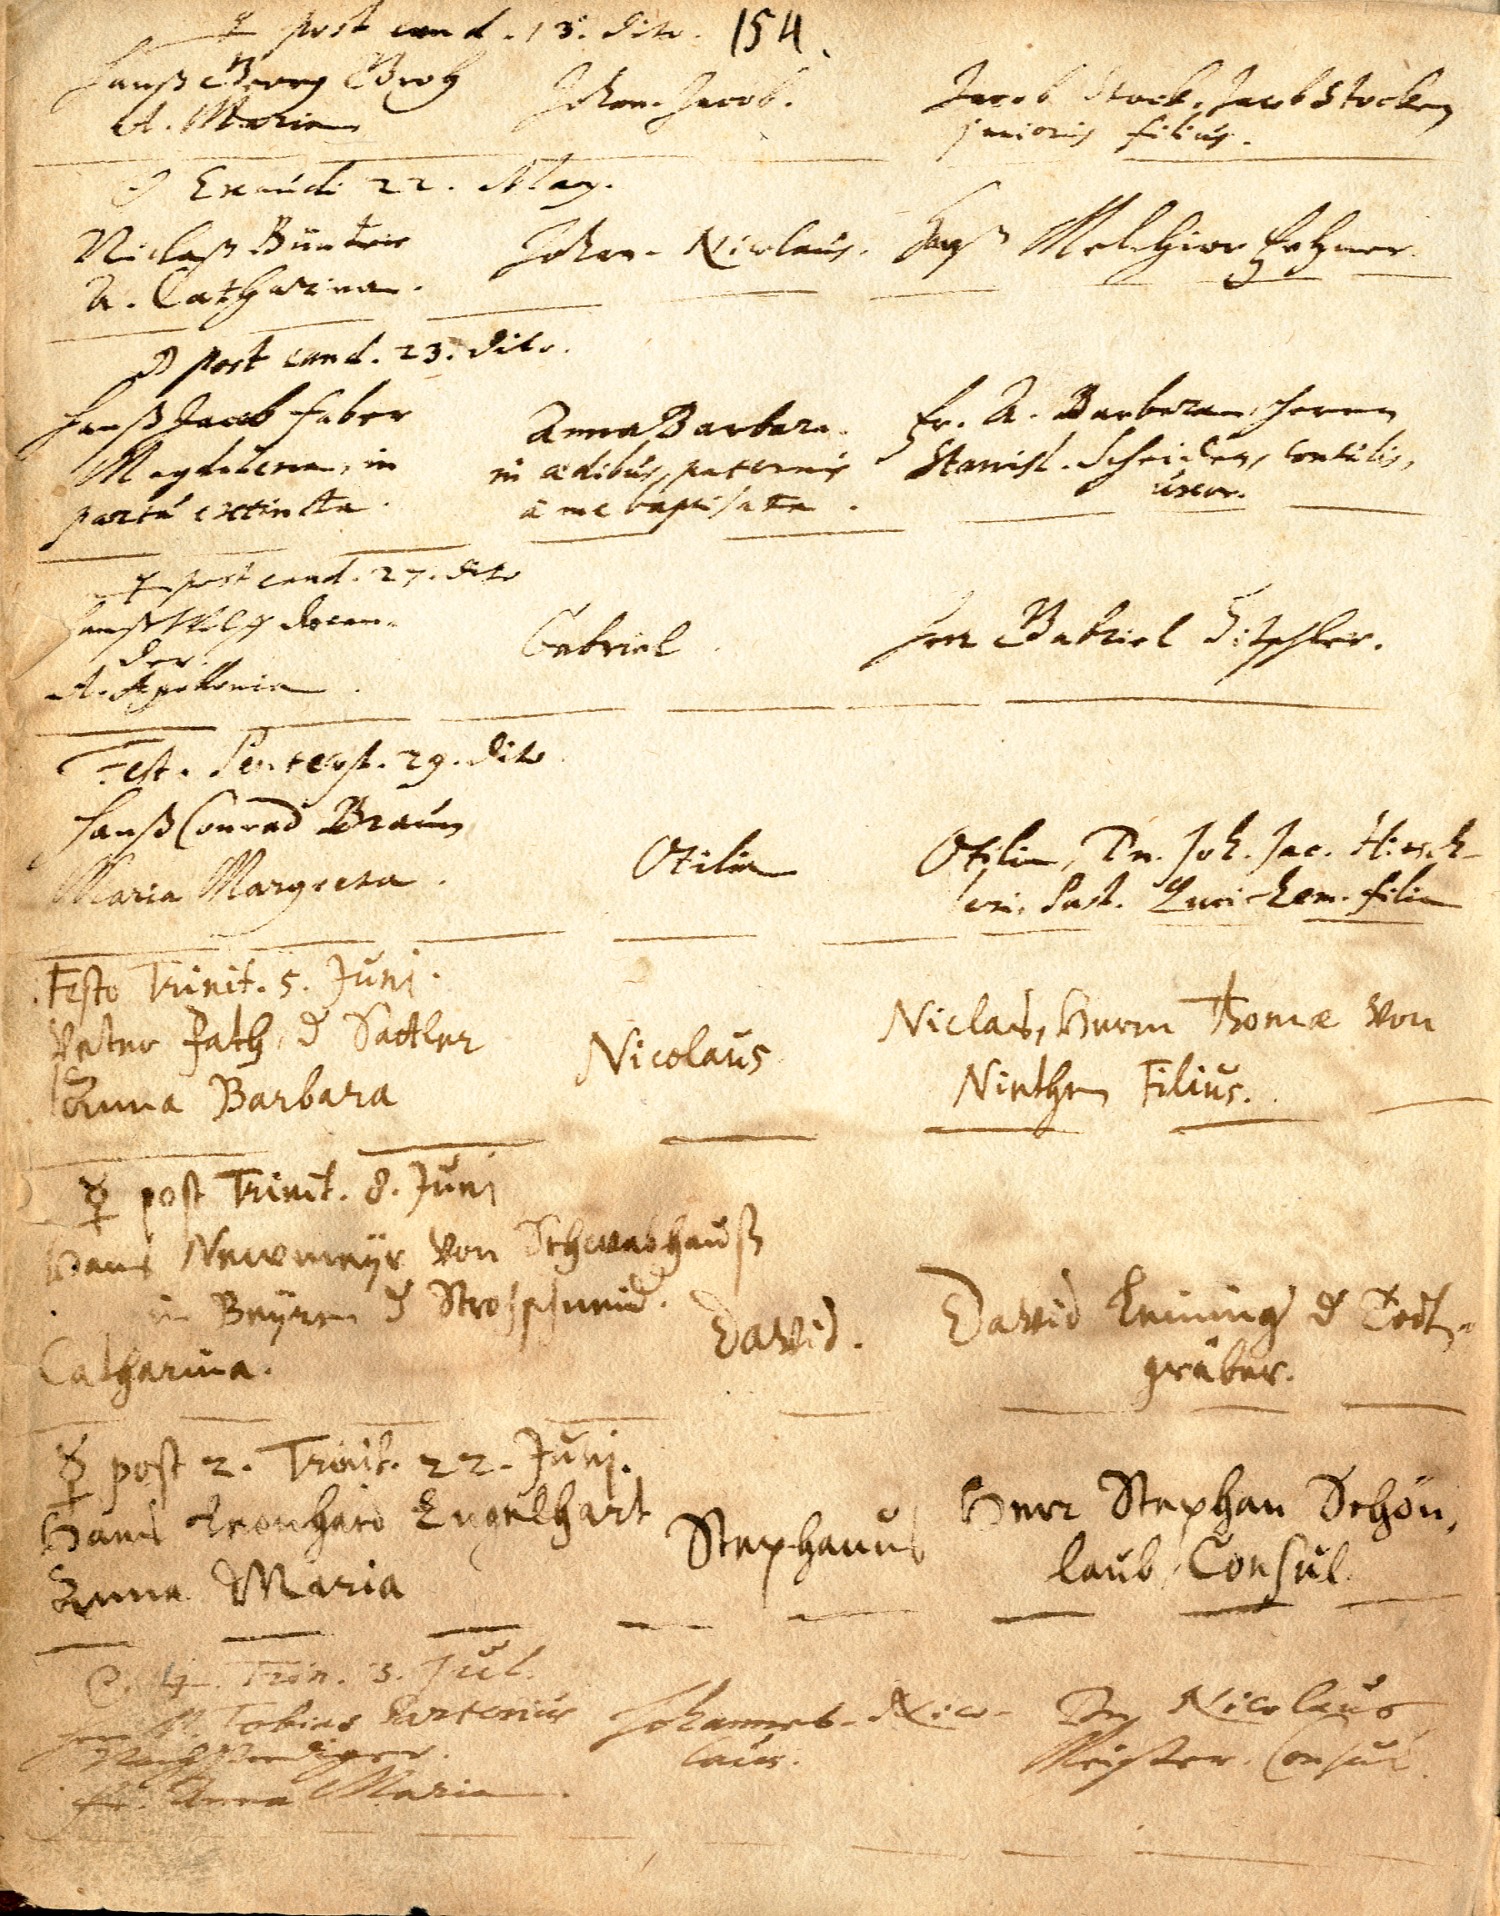 ♀ post eand. 13. dito. 154.
Hanß Georg Groh
A. Maria
Johan. Jacob.
Jacob Stock. Jacob Stocken
junioris filius.
☉ Exaudi 22. May.
Niclaß Büntner
A. Catharina.
Johan. Nicolaus.
Hanß Melchior
☽ post eand. 23. dito.
Hanß Jacob Faber
Magdalena, in
partu extincta.
Anna Barbara.
in ædibus paternis
à me baptisata.
Fr. A. Barbara, Herrn
Stanisl. Scheiden, Consulis,
uxor.
♀ post eand. 27. dito
Hanß
der.
A. Apollonia.
Gabriel.
Herr Gabriel
Fest. Pentecost. 29. dito
Hanß Conrad Braun
Maria Margreta.
Otilia
Otilia, Dn. Joh. Jac. Hirsch-
eri, Past. filia
Festo Trinit. 5. Junj.
Veter Fath, d Sattler
Anna Barbara
Nicolaus
Niclas, Herrn Thomæ von
Filius.
☿ post Trinit. 8. Junj
Hans Newmeyr von Schwabhauß
in Beyrn d
Catharina.
David.
David d Todt-
gräber.
☿ post 2. Trinit. 22. Junj.
Hans Leonhard Engelhart
Anna Maria
Stephanus
Herr Stephan Schön,
laub, Consul.
☉. 4. Trin. 3. Jul.
Herr M. Tobias Sartorius
Fr. Anna Maria.
Johannes-Nico-
laus.
Dn. Nicolaus
Meister. Consul.